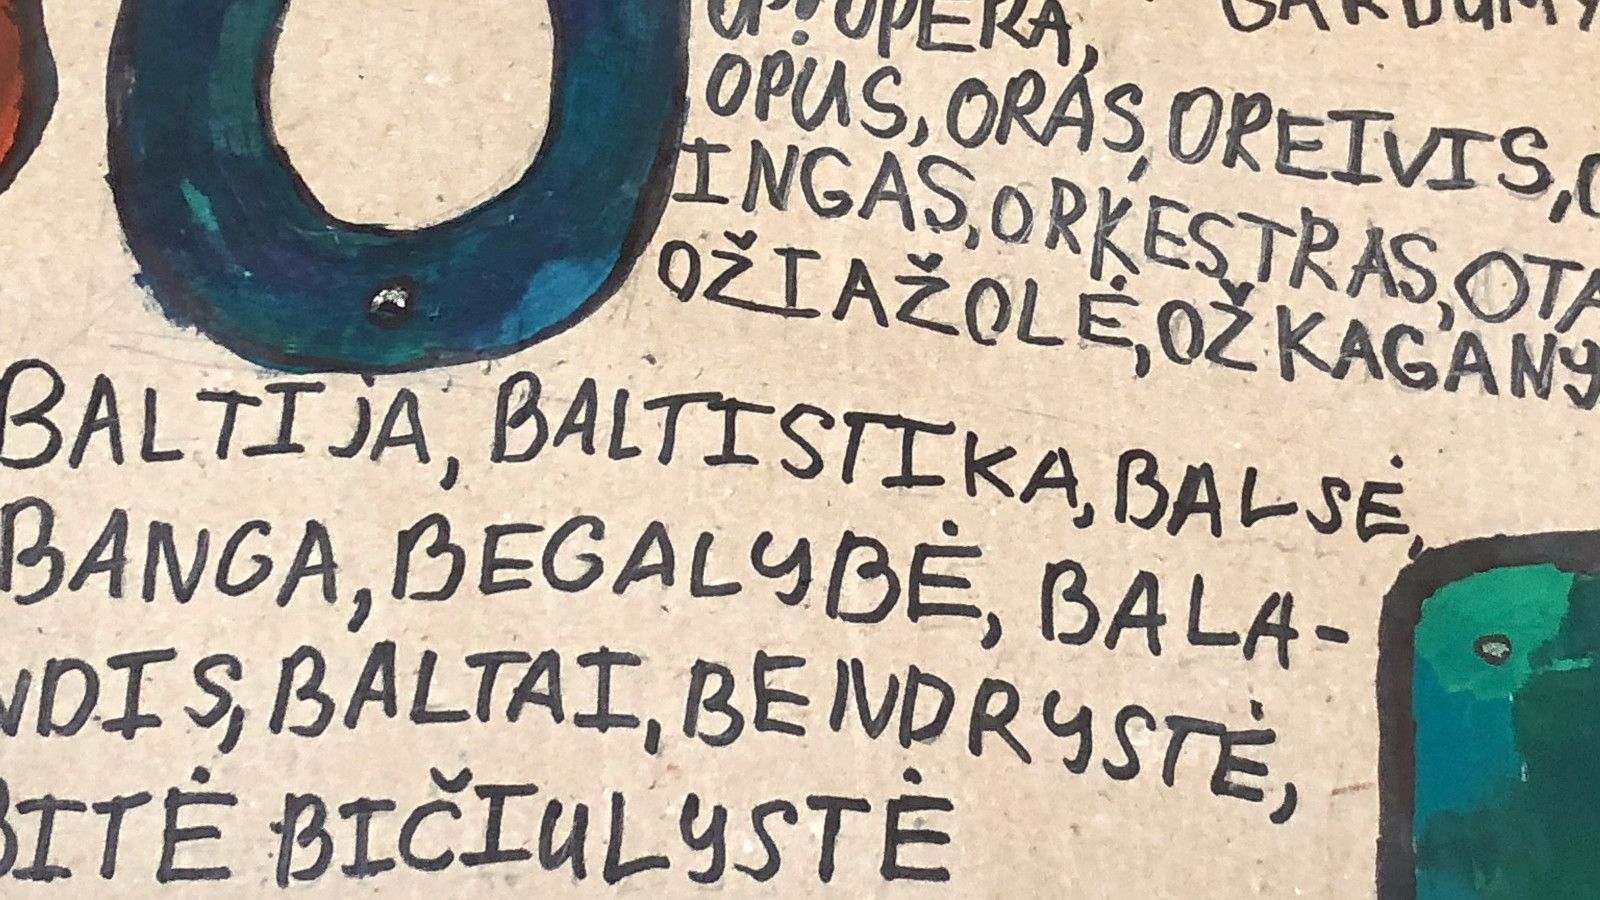 OPERA,
OPUS, ORAS, OREIVIS,
INGAS, ORKESTRAS,
OŽIAŽOLĖ, OŽKAGANY
BALTIJA, BALTISTIKA, BALSĖ,
BANGA, BEGALYBĖ, BALA-
NDIS, BALTAI, BENDRYSTĖ,
BITĖ BIČIULYSTĖ